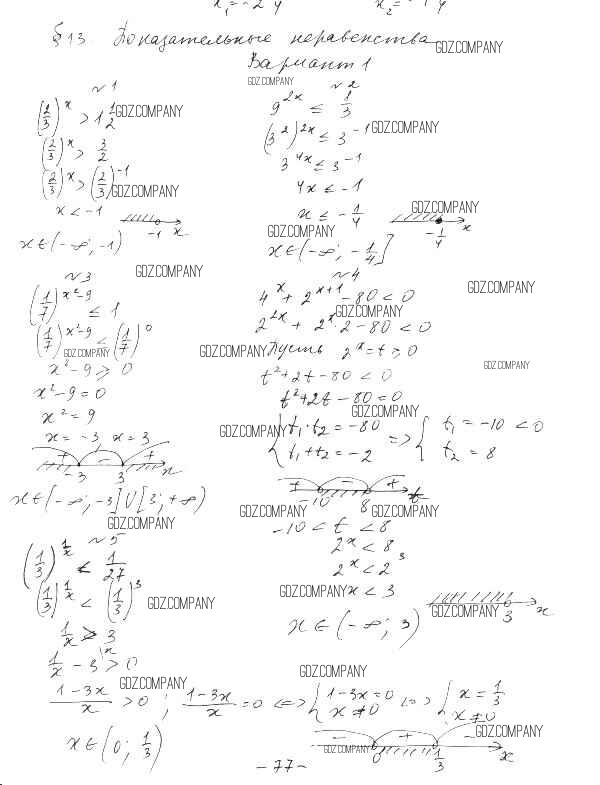 x₁ = -2 y x₂ = -1 y
§ 13. Показательные неравенства
GDZ.COMPANY
Вариант 1
GDZ.COMPANY
№1
(2/3)^x > 1 1/2
GDZ.COMPANY
(2/3)^x > 3/2
(2/3)^x > (2/3)^-1
GDZ.COMPANY
x < -1
-1 x
x ∈ (-∞; -1)
№2
9^2x ≤ 1/3
(3^2)^2x ≤ 3^-1
GDZ.COMPANY
3^4x ≤ 3^-1
4x ≤ -1
x ≤ -1/4
GDZ.COMPANY
-1/4 x
GDZ.COMPANY
x ∈ (-∞; -1/4]
№3
GDZ.COMPANY
(1/7)^x²-9 ≤ 1
(1/7)^x²-9 ≤ (1/7)^0
GDZ.COMPANY
x² - 9 ≥ 0
x² - 9 = 0
x² = 9
x = -3, x = 3
+ - +
-3 3 x
x ∈ (-∞; -3] ∪ [3; +∞)
GDZ.COMPANY
№4
4^x + 2^x+1 - 80 < 0
GDZ.COMPANY
GDZ.COMPANY
2^2x + 2^x · 2 - 80 < 0
GDZ.COMPANY
Пусть 2^x = t > 0
GDZ.COMPANY
t² + 2t - 80 < 0
t² + 2t - 80 = 0
GDZ.COMPANY
GDZ.COMPANY
{ t₁ · t₂ = -80 => { t₁ = -10 < 0
t₁ + t₂ = -2 t₂ = 8
+ - +
-10 8 t
GDZ.COMPANY GDZ.COMPANY
-10 < t < 8
2^x < 8
2^x < 2^3
GDZ.COMPANY
x < 3
GDZ.COMPANY
3 x
x ∈ (-∞; 3)
№5
(1/3)^1/x < 1/27
(1/3)^1/x < (1/3)^3
GDZ.COMPANY
1/x > 3
1/x - 3 > 0
GDZ.COMPANY
GDZ.COMPANY
1-3x/x > 0 ; 1-3x/x = 0 <=> { 1-3x = 0 <=> { x = 1/3
x ≠ 0 x ≠ 0
GDZ.COMPANY
- + -
GDZ.COMPANY
0 1/3 x
x ∈ (0; 1/3)
- 77 -